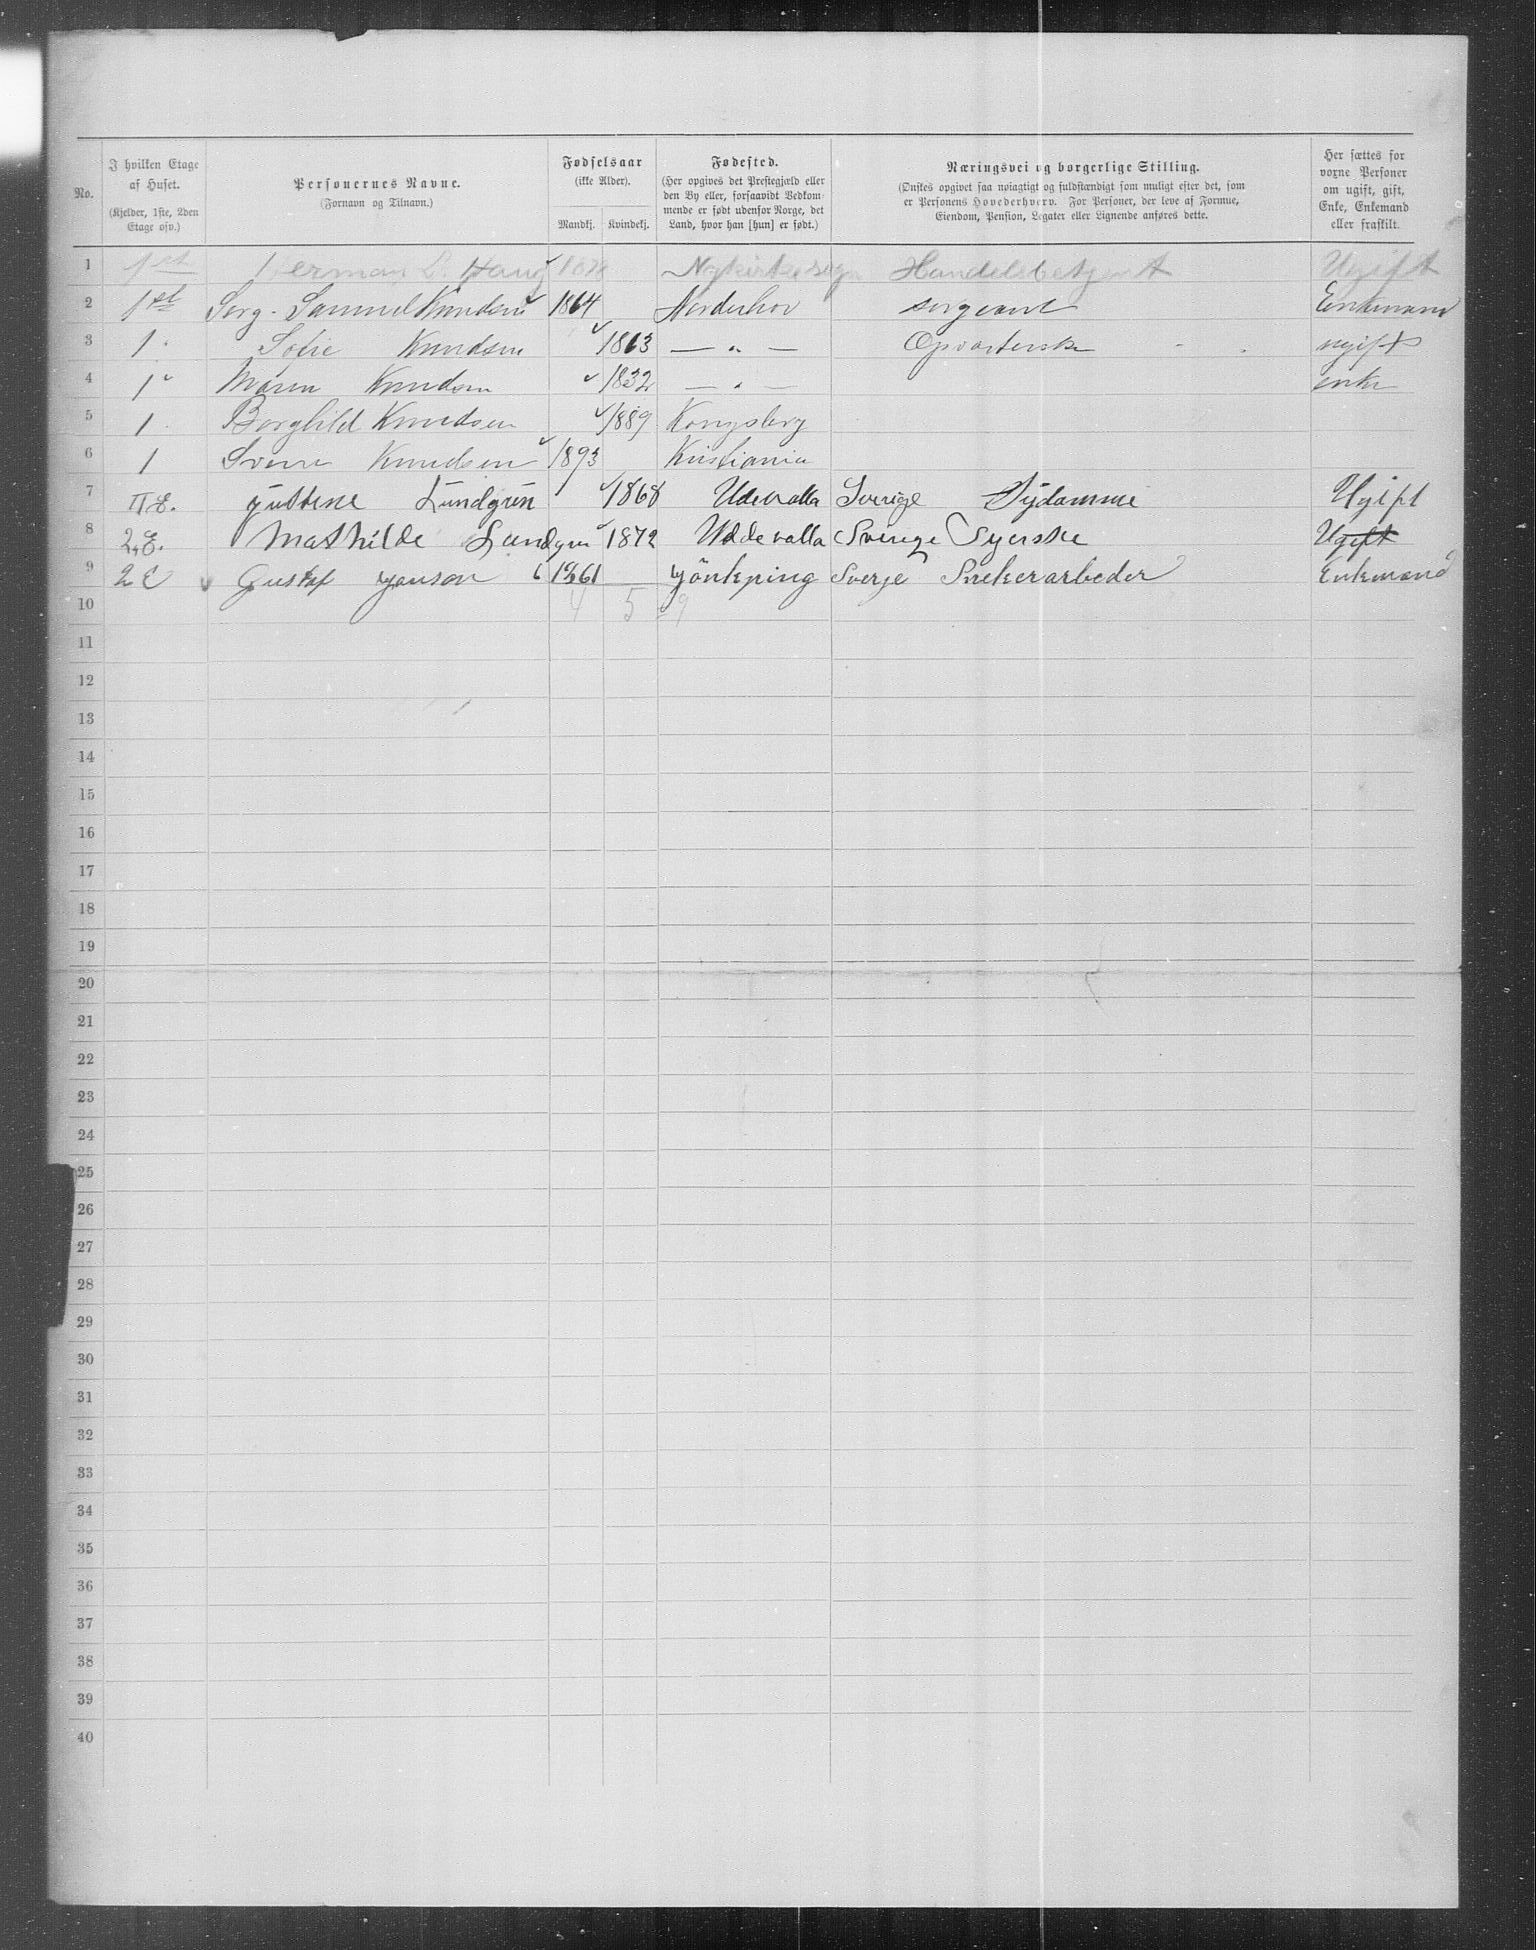 No.
I hvilken Etage af Huset. (Kjelder, 1ste, 2den Etage osv.)
Personernes Navne. (Fornavn og Tilnavn.)
Fødselsaar (ikke Alder).
Mandkj. Kvindekj.
Fødested. (Her opgives det Prestegjæld eller den By eller, forsaavidt Vedkommende er født udenfor Norge, det Land, hvor han [hun] er født.)
Næringsvei og borgerlige Stilling. (Ønskes opgivet saa nøiagtigt og fuldstændigt som muligt efter det, som er Personens Hovederhverv. For Personer, der leve af Formue, Eiendom, Pension, Legater eller Lignende anføres dette.)
Her sættes for voxne Personer om ugift, gift, Enke, Enkemand eller fraskilt.
1 1st Herman L. Haug Nykirkesogn Handelsbetjent Ugift
2 1st Serg. Samuel Knudsen 1864 Norderhov sergeant Enkemand
3 1. Sofie Knudsen 1863 — " — Opvarterske ugift
4 1 Maren Knudsen 1832 — " — enke
5 1. Borghild Knudsen 1889 Kongsberg
6 1 Sverre Knudsen 1893 Kristiania
7 II E. Lundgren 1868 Udevalla Sverige Sydamme Ugift
8 2 E. Mathilde Lundgren 1872 Uddevalla Sverige Syerske Ugift
9 2 E Gustaf Janson 1861 Jönkping Sverje Snekerarbeder Enkemand
10 4 5 9
11
12
13
14
15
16
17
18
19
20
21
22
23
24
25
26
27
28
29
30
31
32
33
34
35
36
37
38
39
40